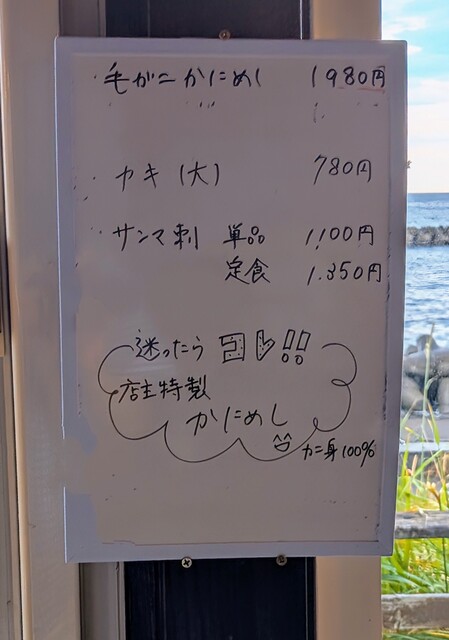 毛がニかにめし 1980円
カキ(大) 780円
サンマ刺 単品 1,100円
定食 1.350円
迷ったら コレ!!
店主特製
かにめし
カニ身100%